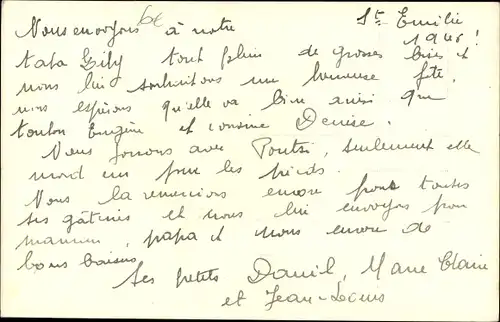 St. Emilie
1948!
Nous envoyons à notre
tata Lily tout plein de grosses bises et
nous lui souhaitons une heureuse fête,
nous espérons qu'elle va bien ainsi que
tonton Eugène et cousine Denise.
Nous jouons avec seulement elle
mord un peu les pieds.
Nous la remercions encore pour toutes
ses gâteries et nous lui envoyons pour
maman, papa et nous encore de
bons baisers
Ses petits Daniel, Marie Claire
et Jean-Louis